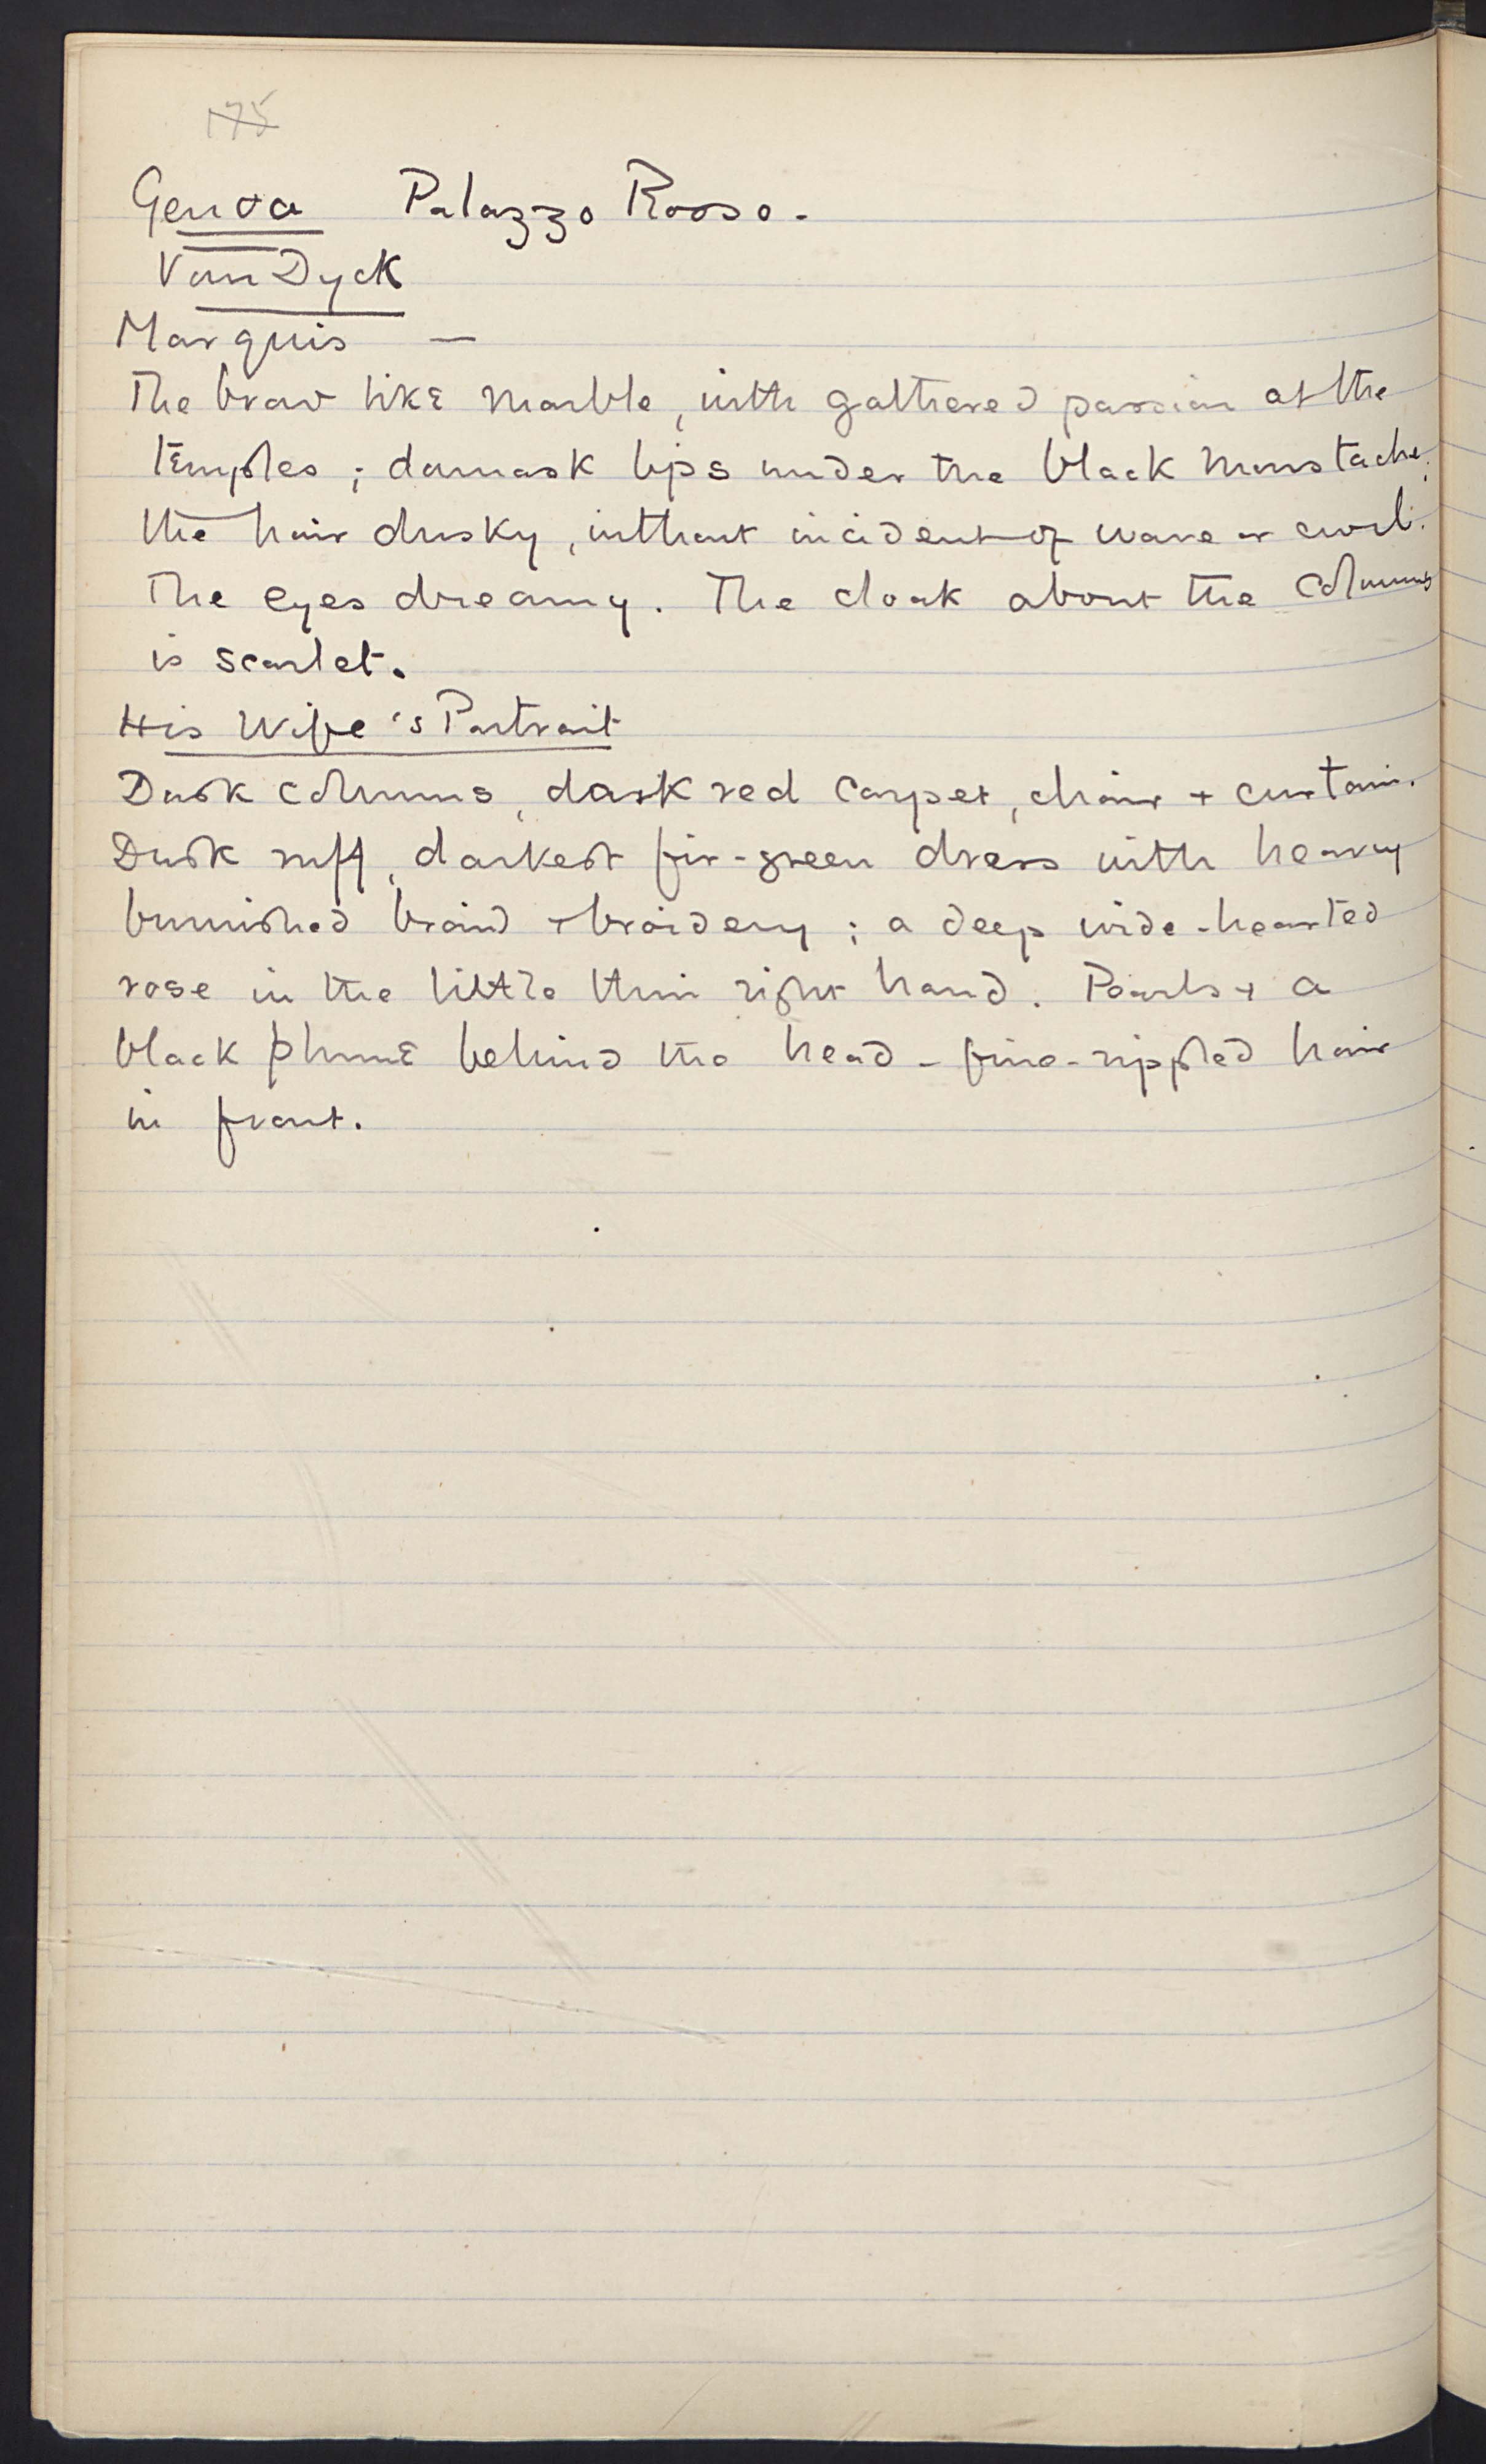 175
Genoa Palazzo Rosso.
Van Dyck
Marquis —
The brow like marble, with gathered passion at the
temples; damask lips under the black moustache;
the hair dusky, without incident of wave or curl.
The eyes dreamy. The cloak about the columns
is scarlet.
His Wife's Portrait
Dusk columns, dark red carpet, chair + curtain.
Dusk ruff, darkest fir-green dress with heavy
burnished braid + broidery; a deep wide-hearted
rose in the little thin right hand. Pearls + a
black plume behind the head - fine-rippled hair
in front.